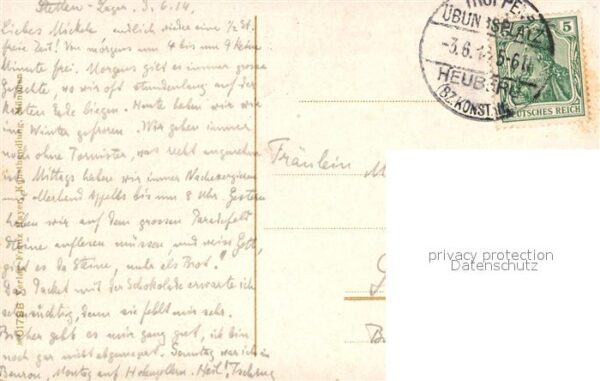 Stetten-Lager. 3.6.14.
Liebes Mickele endlich wieder eine 1/2 St.
freie Zeit! Von morgens um 4 bis um 9 keine
Minute frei. Morgens gibt es immer grosse
Gefechte, wo wir oft stundenlang auf der
Erden liegen. Heute haben wir wie
im Winter gefroren. Wir gehen immer
noch ohne Tornister, was recht angenehm
ist. Mittags haben wir immer Nachexerzieren
und Appells bis um 8 Uhr. Gestern
haben wir auf dem grossen Paradefeld
Steine auflesen müssen und weiss Gott,
gibt es da Steine, mehr als Brot!
Das Packet mit der Schokolade erwarte ich
sehnsüchtig, denn sie fehlt mir sehr.
Bisher geht es mir ganz gut, ich bin
noch gar nicht abgemagert. Sonntag war ich in
Beuron, Montag auf Hohenzollern. Heil!
Fräulein M
TRUPPEN
ÜBUNGSPLATZ
-3.6.14.5-6N
HEUBERG
(BZ. KONST.)
5
DEUTSCHES REICH
privacy protection
Datenschutz
Verlag Franz Kunsthandlung, München